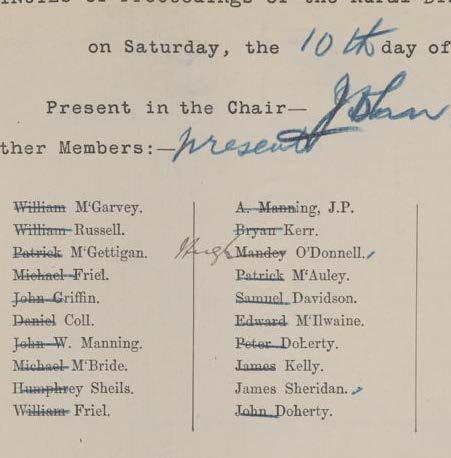 of Proceedings of the Rural
on Saturday, the 10th day of
Present in the Chair—
ther Members:— present
William M'Garvey.
William Russell.
Patrick M'Gettigan.
Michael Friel.
John Griffin.
Daniel Coll.
John W. Manning.
Michael M'Bride.
Humphrey Sheils.
William Friel.
A. Manning, J.P.
Bryan Kerr.
Hugh Mandey O'Donnell.
Patrick M'Auley.
Samuel Davidson.
Edward M'Ilwaine.
Peter Doherty.
James Kelly.
James Sheridan.
John Doherty.